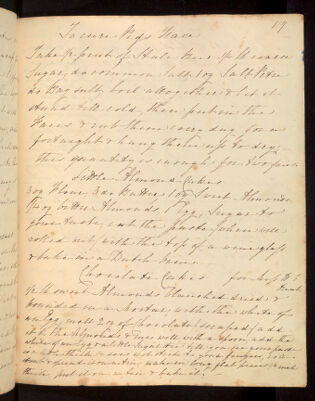 17
To cure Pigs Face
Take 1 pint of Stale Beer 1/4 lb coarse
Sugar, do common Salt, 1 oz Salt Petre
do Bay salt, boil altogether & let it
stand till cold, then put in the
Faces & rub them every day for a
fortnight & hang them up to dry,
this quantity is enough for two faces
Little Almond Cakes
3 oz Flour 3 do Butter 1 oz Sweet Almonds
1/2 oz bitter Almonds, 1 Egg, Sugar to
your taste, cut the paste when well
rolled out, with the top of a wine glass
& bake in a Dutch oven
Chocolate Cakes for
1/4 lb sweet Almonds blanched dried &
pounded in a Mortar with the white of
an Egg, melt 2 oz of Chocolate scraped, add
it to the Almonds & mix well with a spoon, add the
white of an Egg & a little Sugar
thick & does not stick to your fingers,
long flat pieces
think put it on a tin & bake it